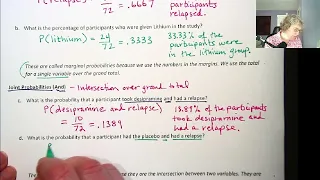 P(relapse) = 
72 = .6667 participants
relapsed.
b. What is the percentage of participants who were given Lithium in the study?
P(lithium) = 24/72 = .3333 33.33% of the
participants were
in the lithium group.
(These are called marginal probabilities because we use the numbers in the margins. We use the total
for a single variable over the grand total.
Joint Probabilities (And) – Intersection over grand total
c. What is the probability that a participant took desipramine and had a relapse?
P(desipramine and relapse) 13.89% of the participants
= 10/72 = .1389 took desipramine and
had a relapse.
d. What is the probability that a participant had the placebo and had a relapse?
they are the intersection between two variables. They are